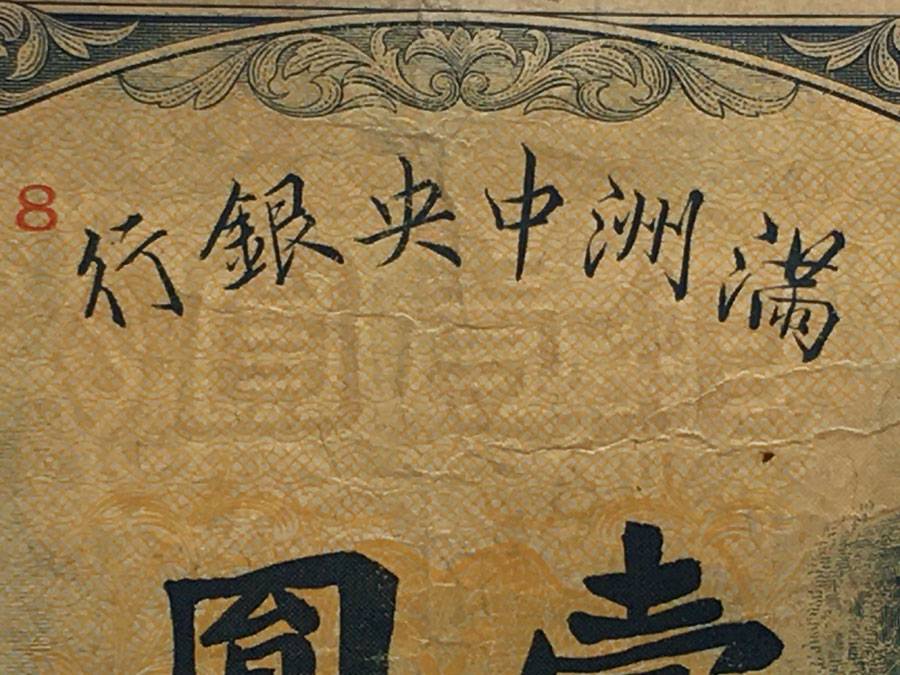 8
滿洲中央銀行
壹圓